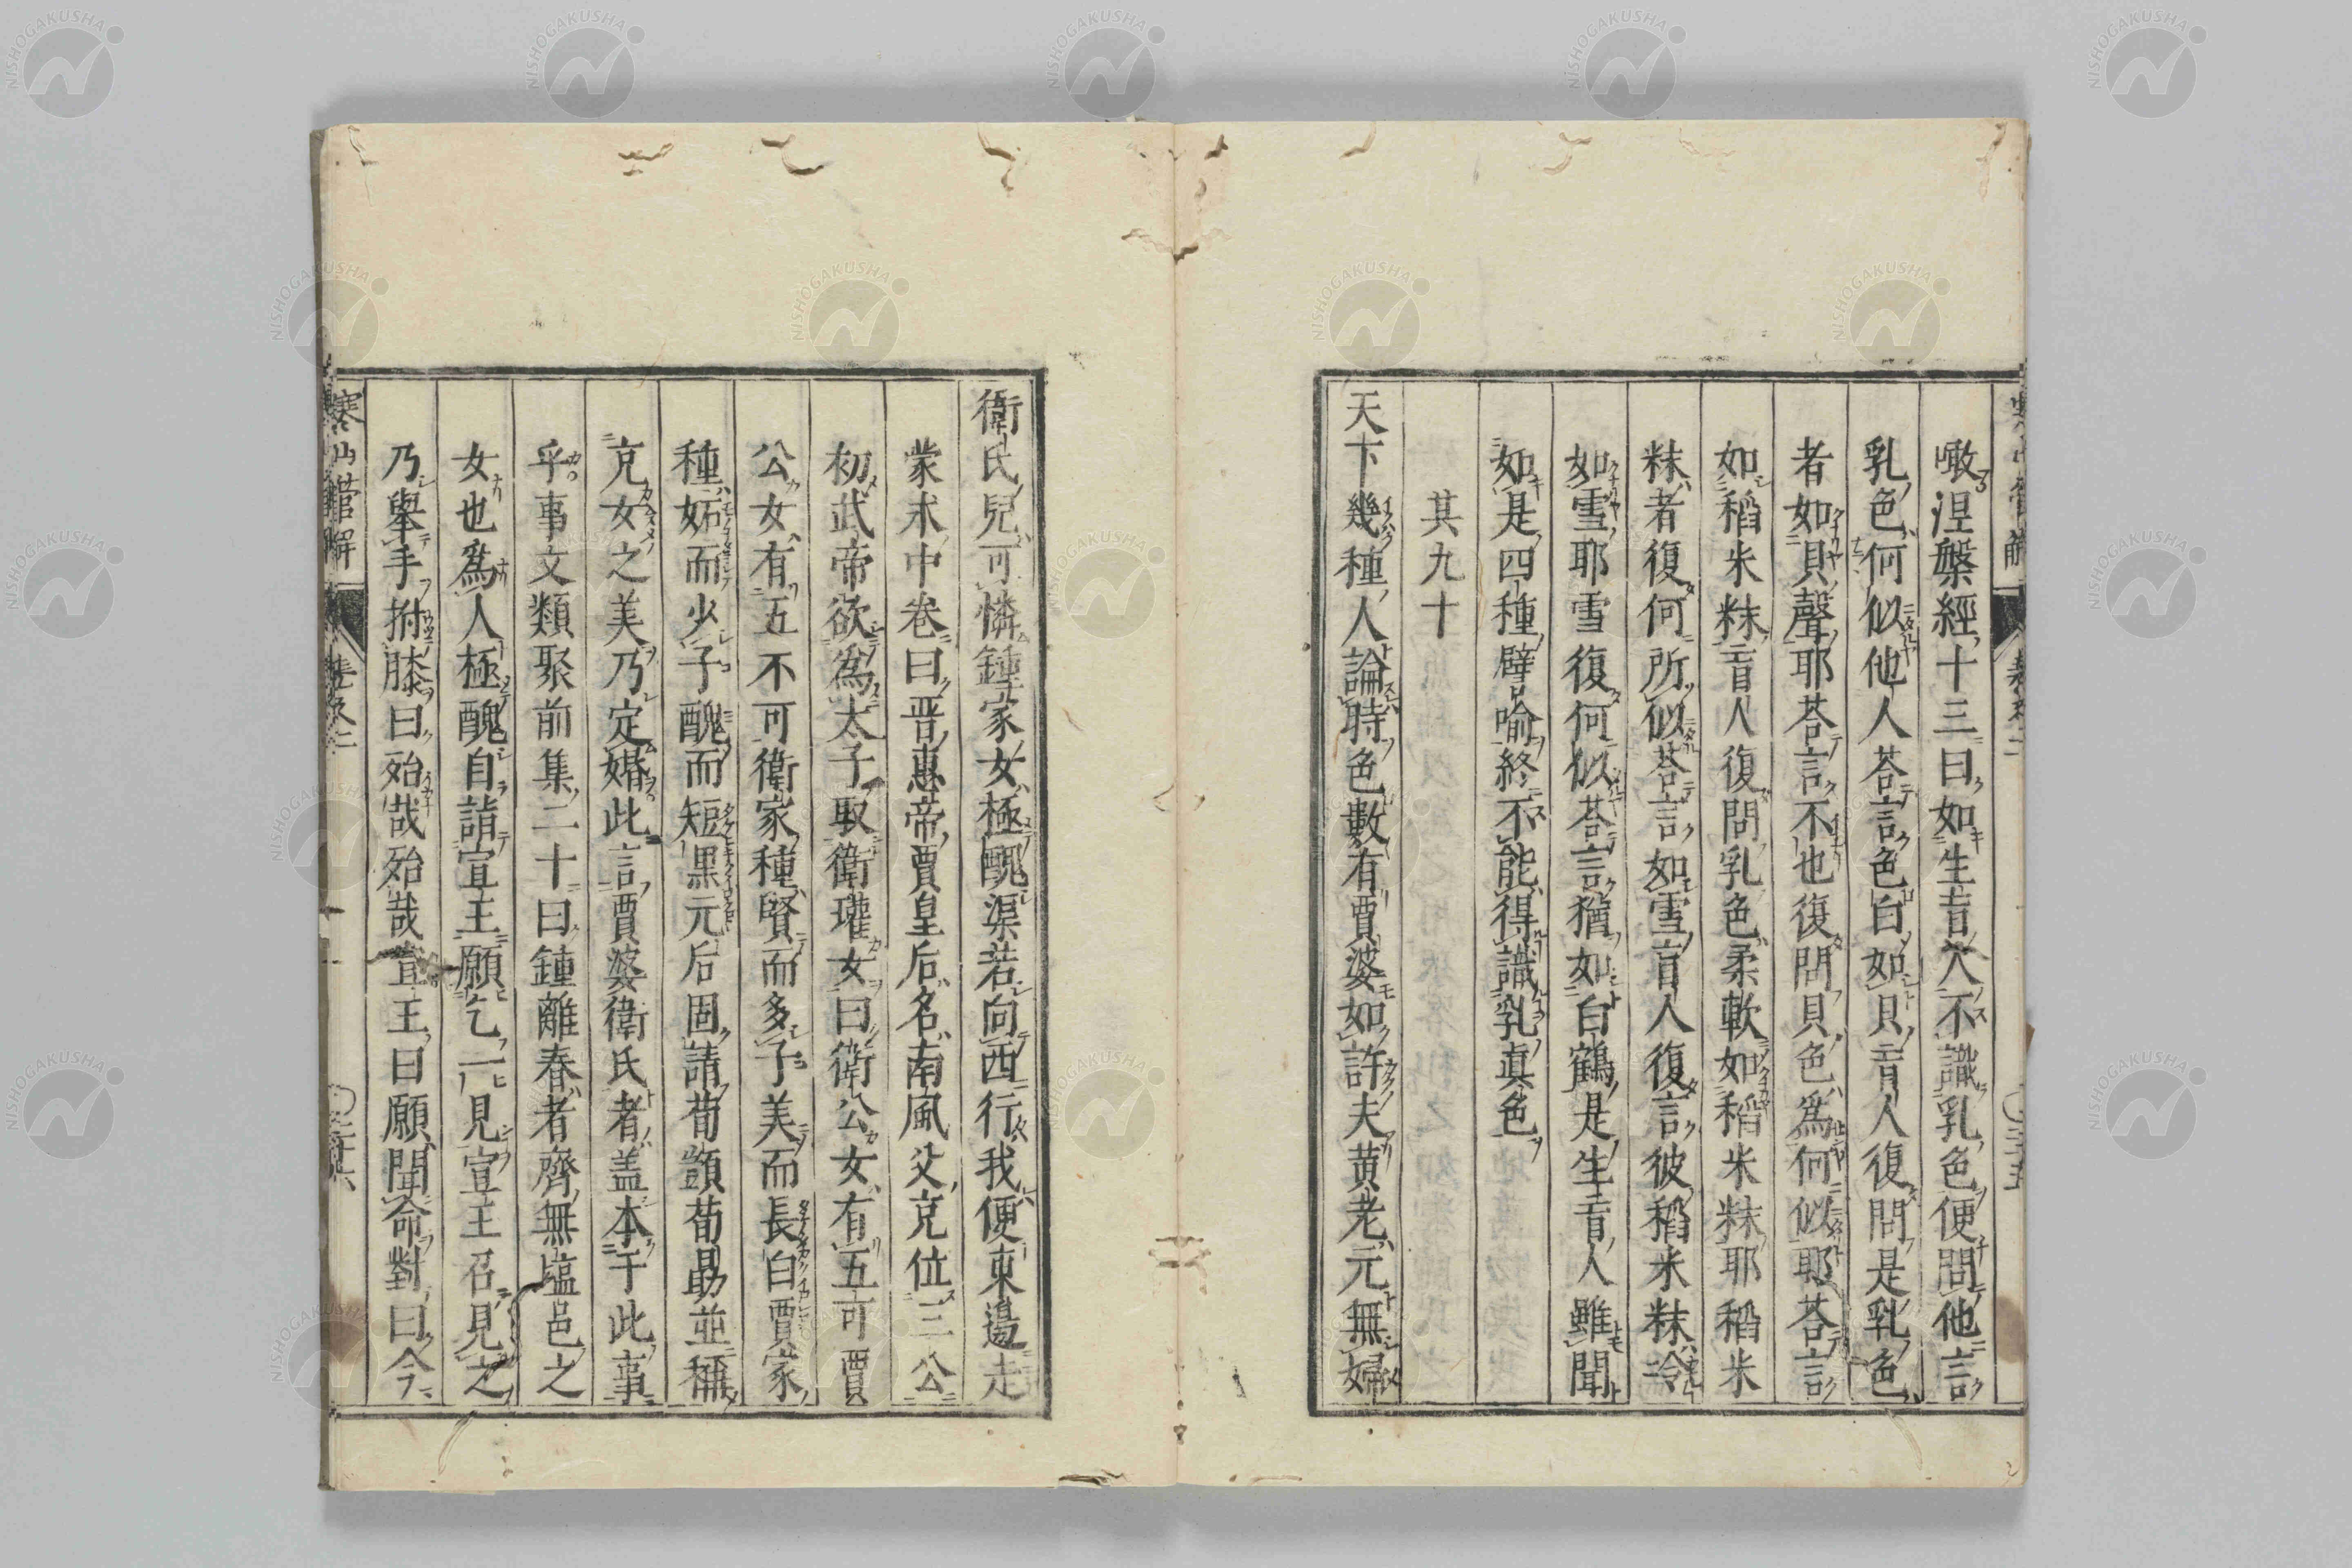 噉涅槃經十三曰如生盲人不識乳色便問他言
乳色何似他人荅言色白如貝盲人復問是乳色
者如貝聲耶荅言不也復問貝色爲何似耶荅言
如稻米粖盲人復問乳色柔軟如稻米粖耶稻米
粖者復何所似荅言如雪盲人復言彼稻米粖冷
如雪耶雪復何似荅言猶如白鶴是生盲人雖聞
如是四種譬喻終不能得識乳真色
其九十
天下幾種人論時色數有賈婆如許夫黄老元無婦
衛氏兒可憐鍾家女極醜渠若向西行我便東邊走
蒙求中卷曰晋惠帝賈皇后名南風父充位三公
初武帝欲爲太子取衛瓘女曰衛公女有五可賈
公女有五不可衛家種賢而多子美而長白賈家
種妬而少子醜而短黒元后固請荀顗荀勗並稱
充女之美乃定婚此言賈婆衛氏者盖本于此事
乎事文類聚前集二十曰鍾離春者齊無塩邑之
女也爲人極醜自詣宣王願乞一見宣王召見之
乃舉手拊膝曰殆哉殆哉宣王曰願聞命對曰今
寒山管解
NISHOGAKUSHA